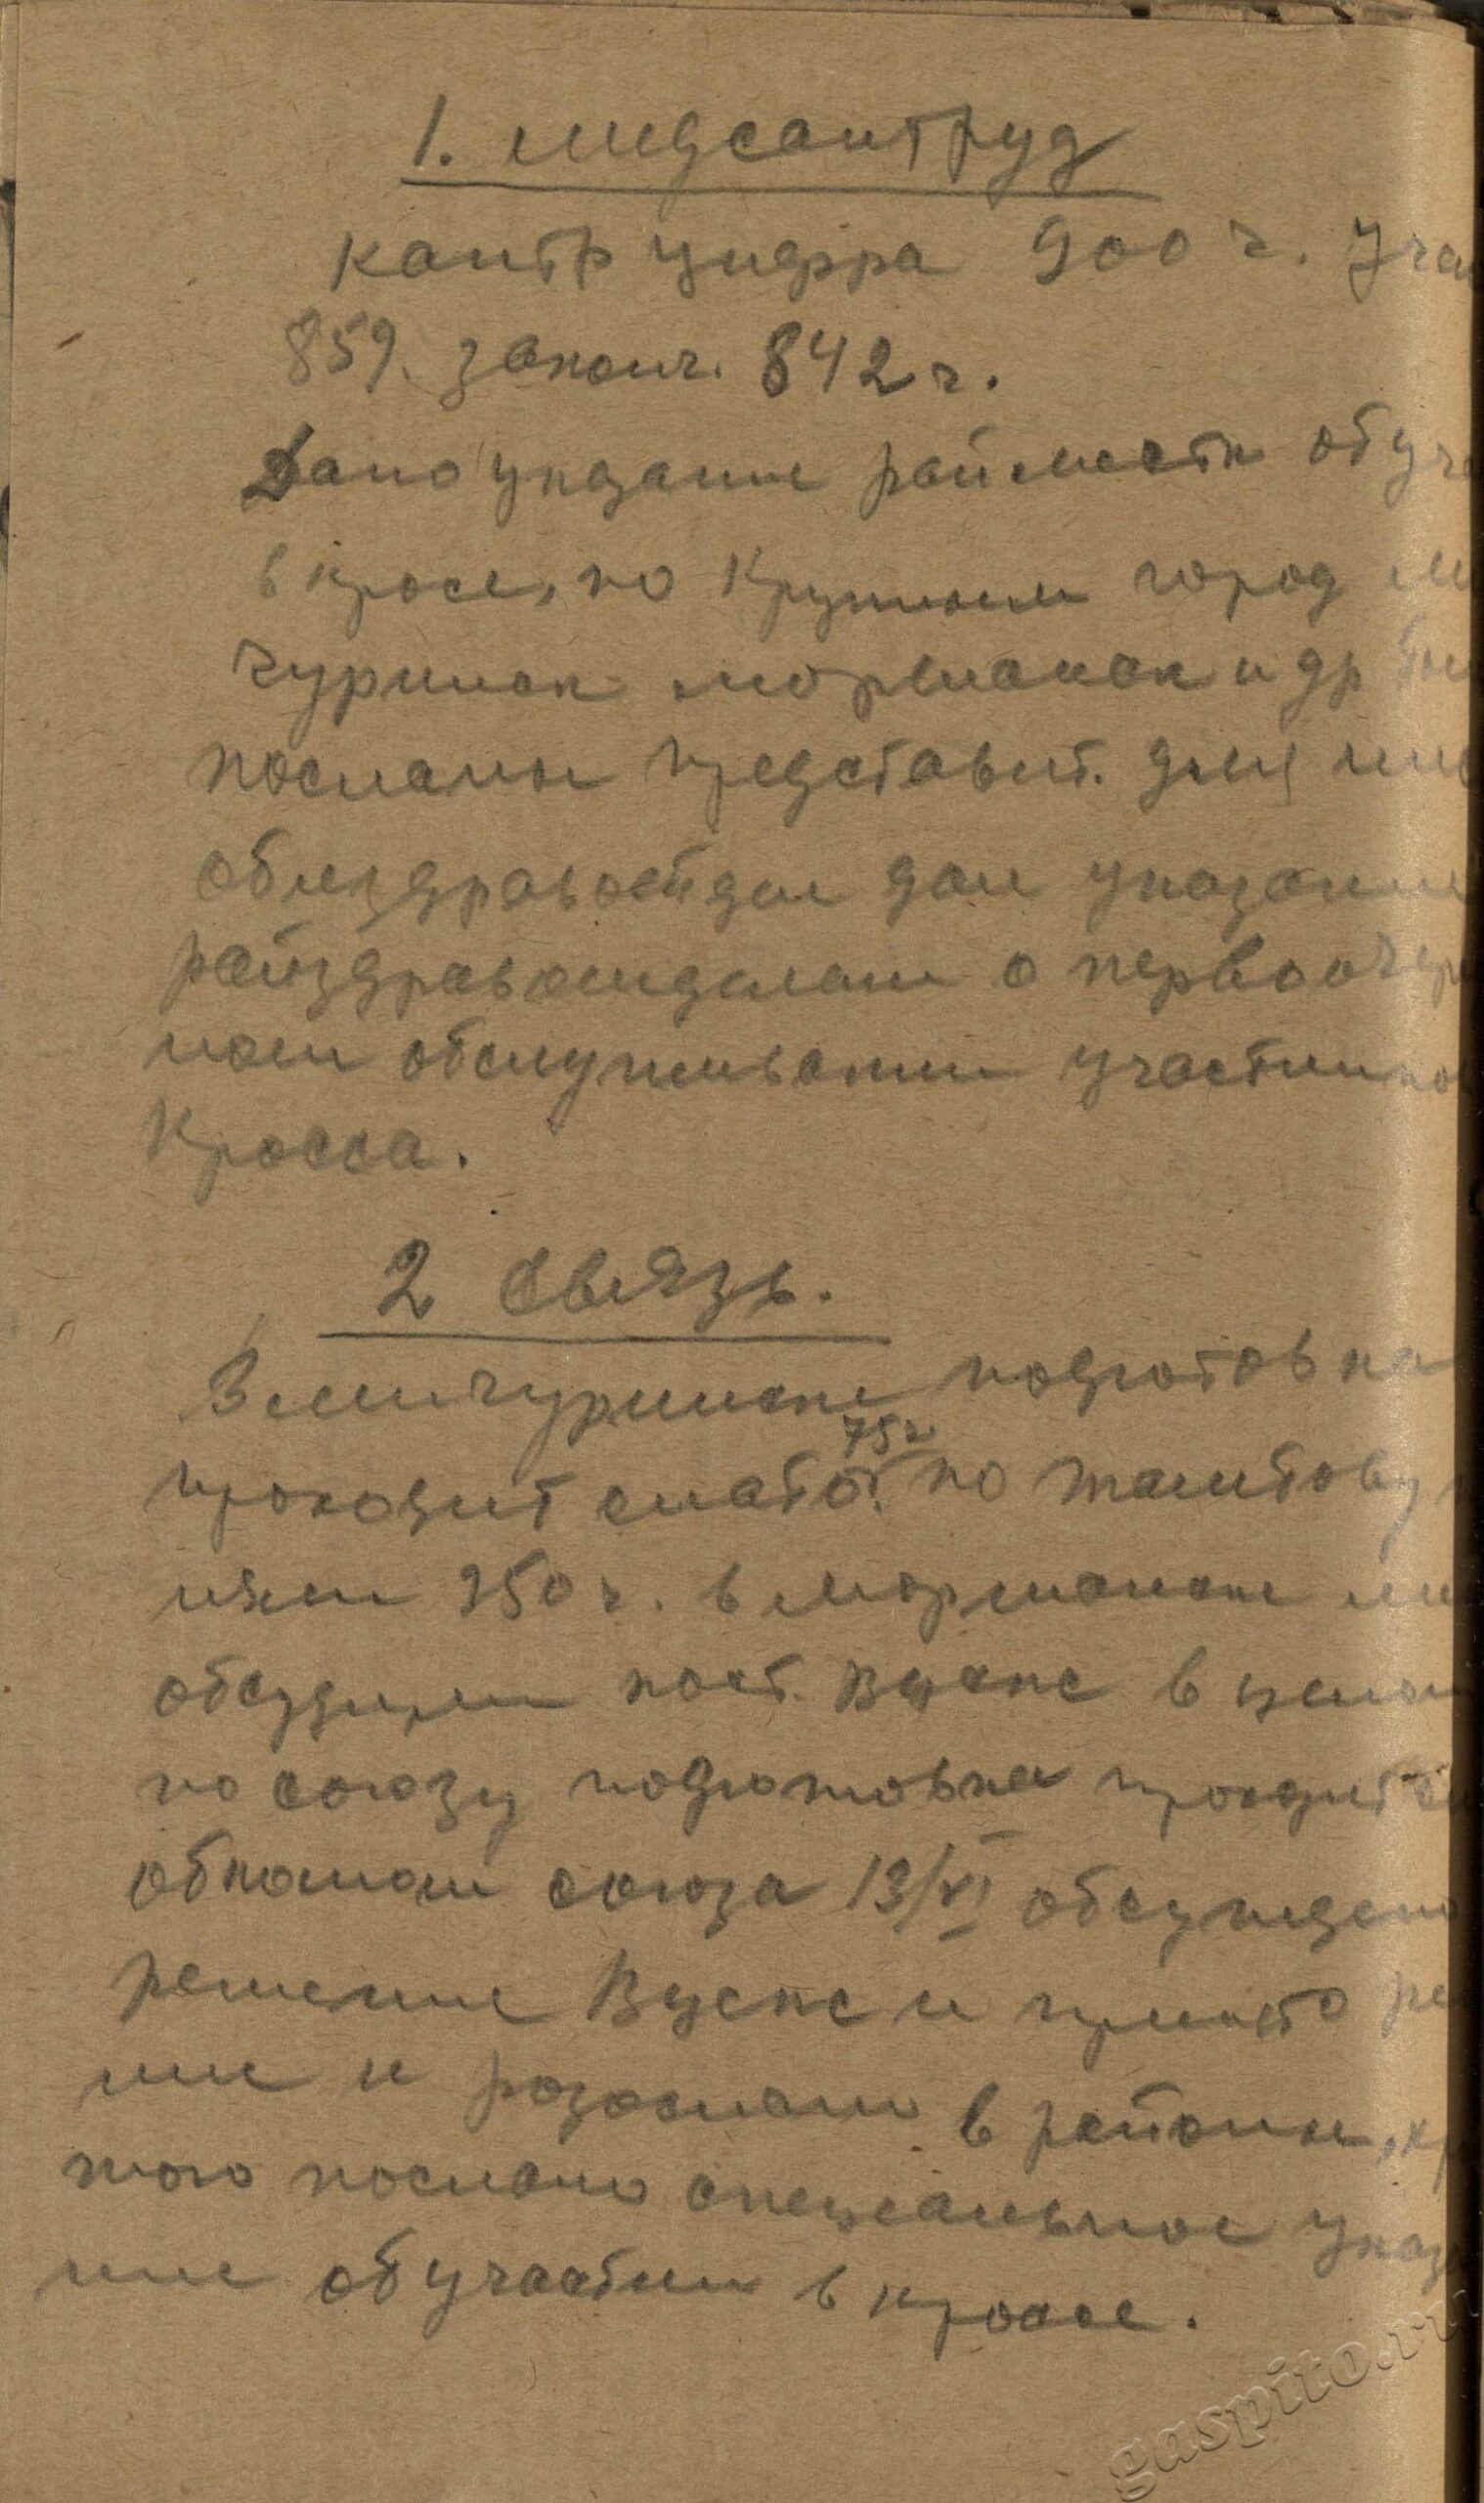 1. медсантруд
контр цифра 900 ч. уча
859. законч. 842 ч.
Дано указание рай местк об уча
в кросе, по крупным город ми
чуринск моршанск и др был
посланы представит. для
облздравотдел дал указание
райздравотделам о первоочеред
ном обслуживании участников
Кросса.
2 Связь.
В мичуринске подготовка
75ч
проходит слабо. по Тамбову
250 ч. в моршанске
обсудили пост. вцспс в целом
по союзу подготовка проходит
обкомом союза 13/VI обсуждено
решение Вцспс и принято ре
ние и розослано в районы, кр
того послано специальное указ
ние об участии в кроссе.
gaspito.ru